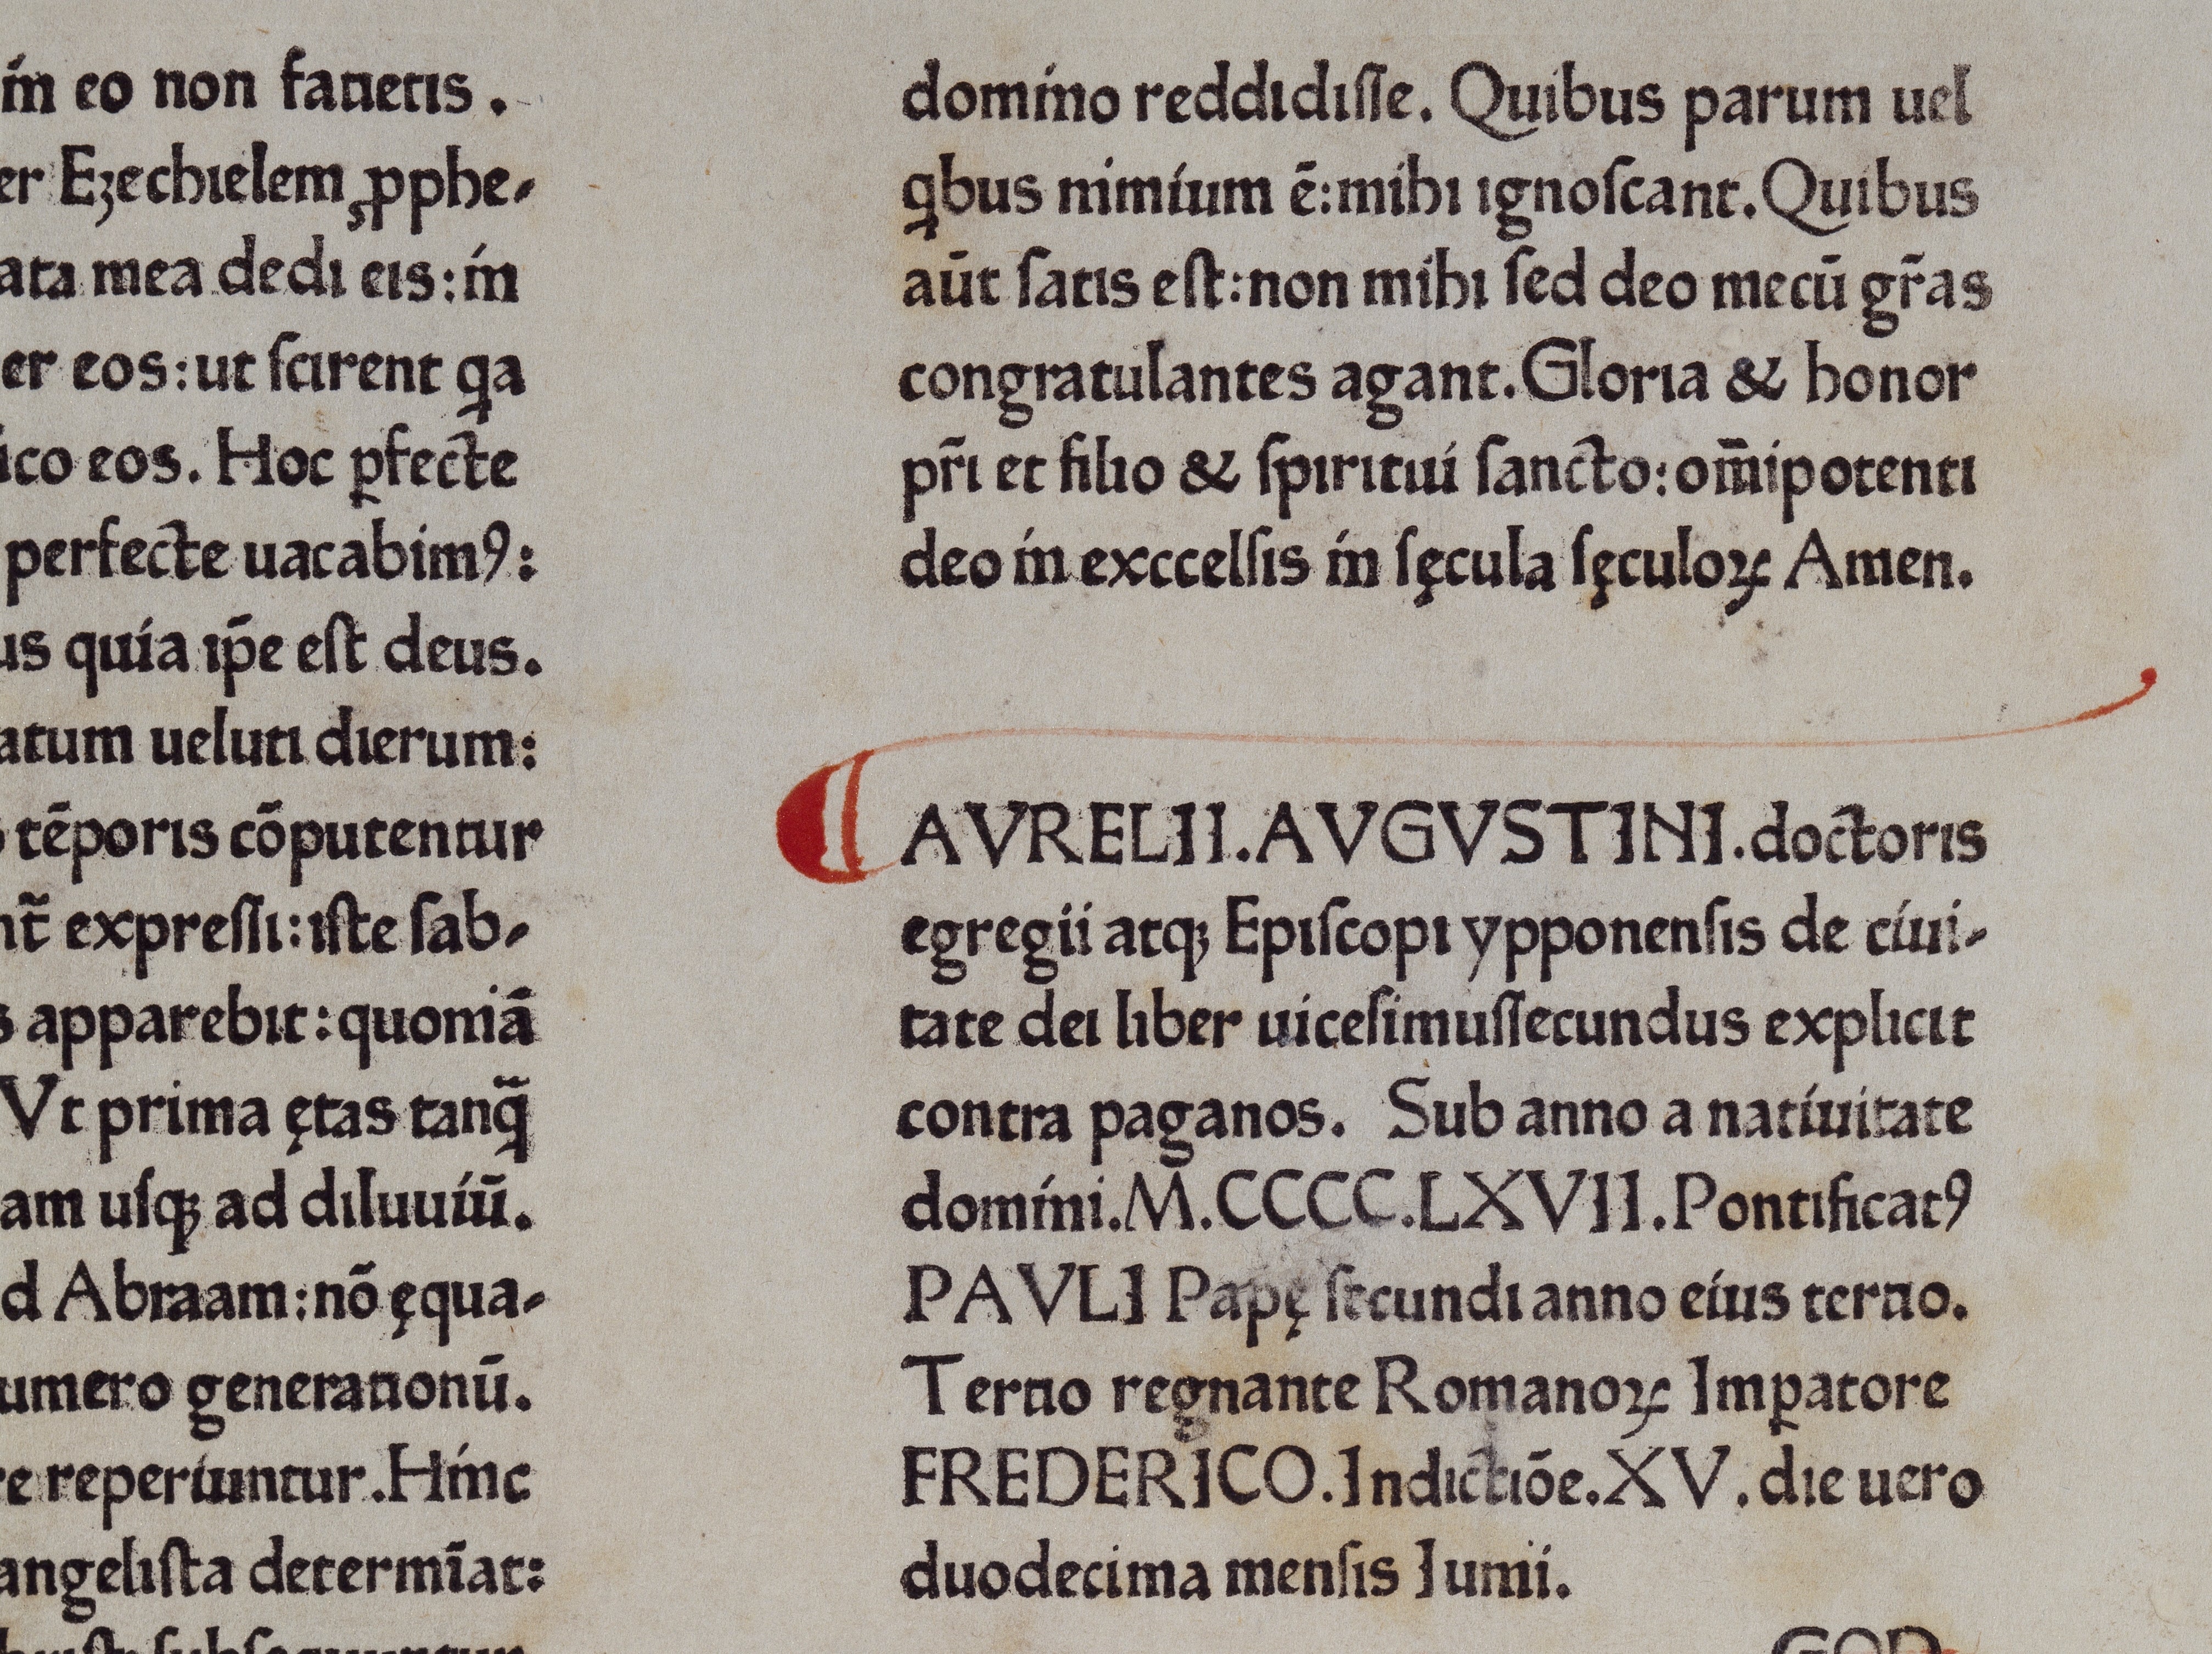 ín eo non fatietis .
er Eʒechielem ꝓphe-
ata mea dedi eis:ín
er eos:ut ſcirent ꝗa
ico eos. Hoc ꝑfecte
perfecte uacabimꝰ:
us quia ip̄e eſt deus.
atum ueluti dierum:
tēporis cōputentur
nt̃ expreſſi:iſte ſab-
s apparebit:quoniā
Vt prima ętas tanꝗ̃
am uſqꝫ ad diluuiū.
d Abraam:nō ęqua-
umero generationū.
re reperiuntur.Hinc
angeliſta determīat:
ſubſequuntur
domino reddidiſſe. Quibus parum uel
ꝗbus nimium ē:mihi ignoſcant.Quibus
aūt ſatis eſt:non mihi ſed deo mecū gr̃as
congratulantes agant.Gloria & honor
pr̃i et filio & ſpiritui ſancto:om̄ipotenti
deo in exccelſis in ſęcula ſęculoꝝ Amen.
AVRELII.AVGVSTINI.doctoris
egregii atqꝫ Epiſcopi ypponenſis de ciui-
tate dei liber uiceſimuſſecundus explicit
contra paganos. Sub anno a natiuitate
domini.M.CCCC.LXVII.Pontificatꝰ
PAVLI Papę ſecundi anno eius tertio.
Tertio regnante Romanoꝝ Imꝑatore
FREDERICO.Indictiōe.XV.die uero
duodecima menſis Iunii.
GOD